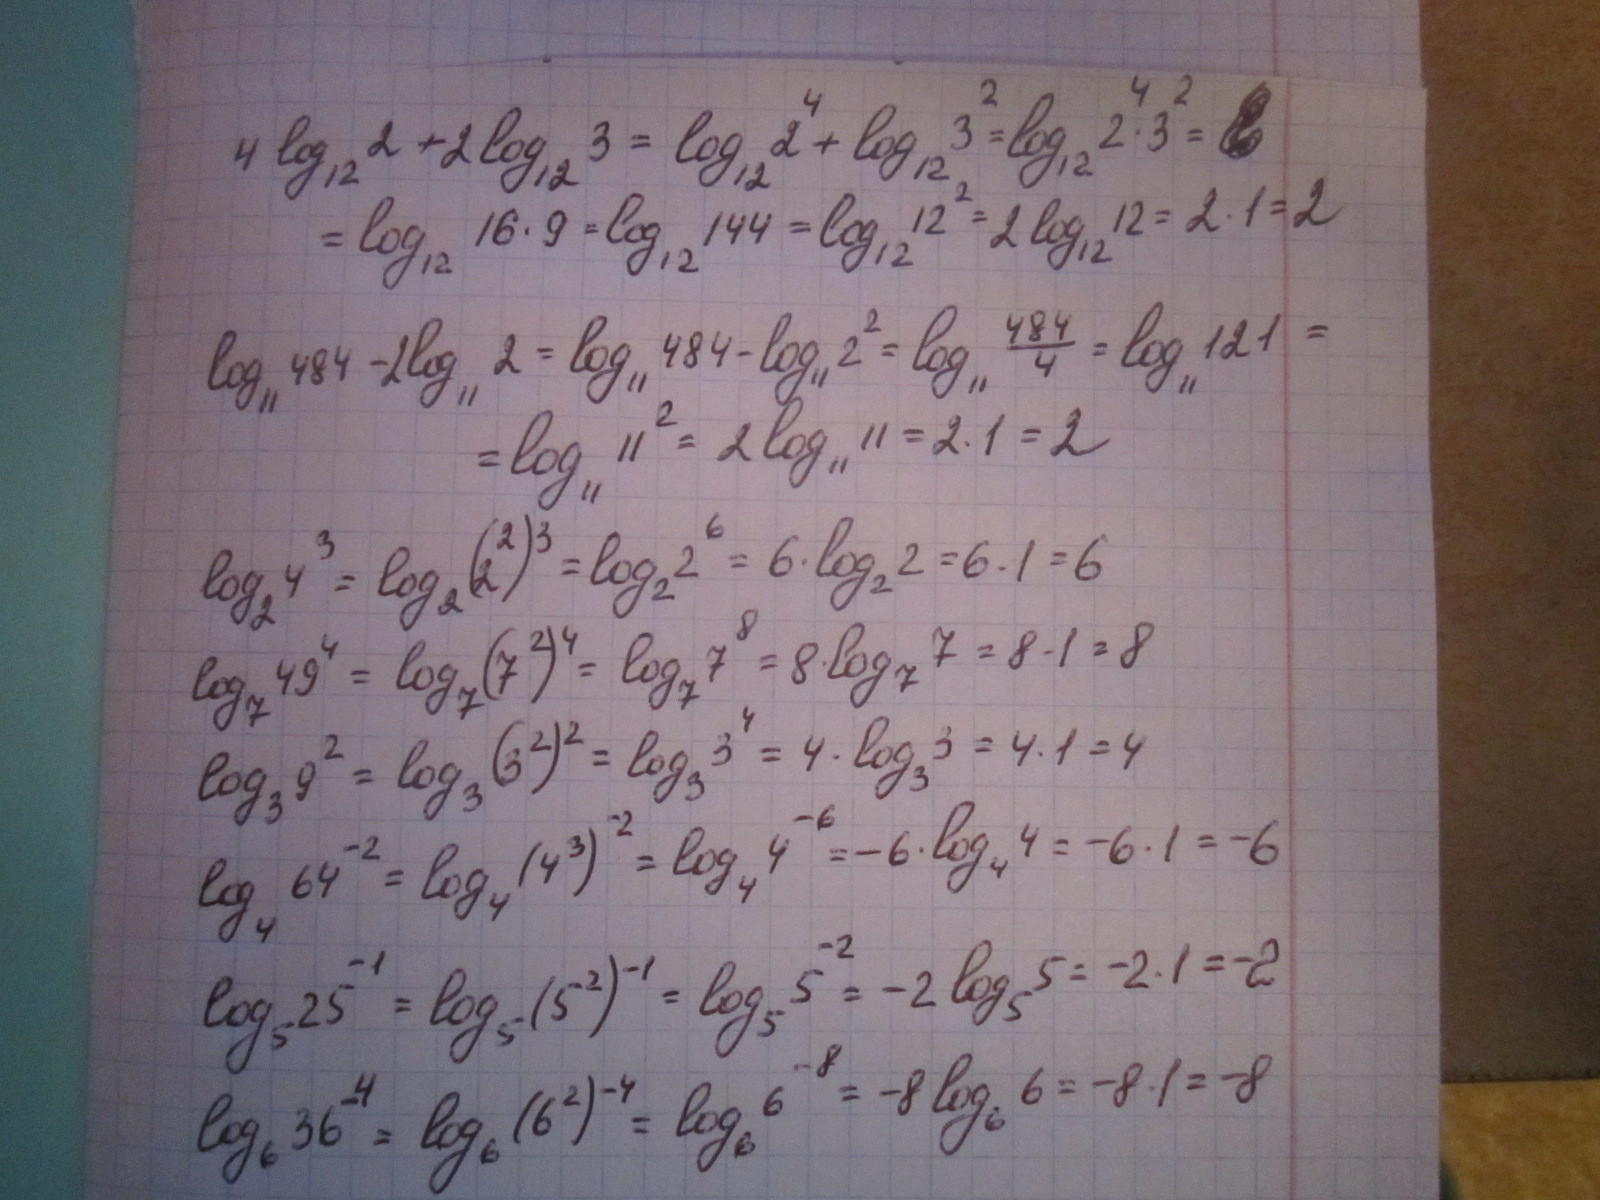 4 log₁₂ 2 + 2 log₁₂ 3 = log₁₂ 2⁴ + log₁₂ 3² = log₁₂ 2⁴ · 3² =
= log₁₂ 16 · 9 = log₁₂ 144 = log₁₂ 12² = 2 log₁₂ 12 = 2 · 1 = 2
log₁₁ 484 - 2 log₁₁ 2 = log₁₁ 484 - log₁₁ 2² = log₁₁ 484/4 = log₁₁ 121 =
= log₁₁ 11² = 2 log₁₁ 11 = 2 · 1 = 2
log₂ 4³ = log₂ (2²)³ = log₂ 2⁶ = 6 · log₂ 2 = 6 · 1 = 6
log₇ 49⁴ = log₇ (7²)⁴ = log₇ 7⁸ = 8 · log₇ 7 = 8 · 1 = 8
log₃ 9² = log₃ (3²)² = log₃ 3⁴ = 4 · log₃ 3 = 4 · 1 = 4
log₄ 64⁻² = log₄ (4³)⁻² = log₄ 4⁻⁶ = -6 · log₄ 4 = -6 · 1 = -6
log₅ 25⁻¹ = log₅ (5²)⁻¹ = log₅ 5⁻² = -2 log₅ 5 = -2 · 1 = -2
log₆ 36⁻⁴ = log₆ (6²)⁻⁴ = log₆ 6⁻⁸ = -8 log₆ 6 = -8 · 1 = -8